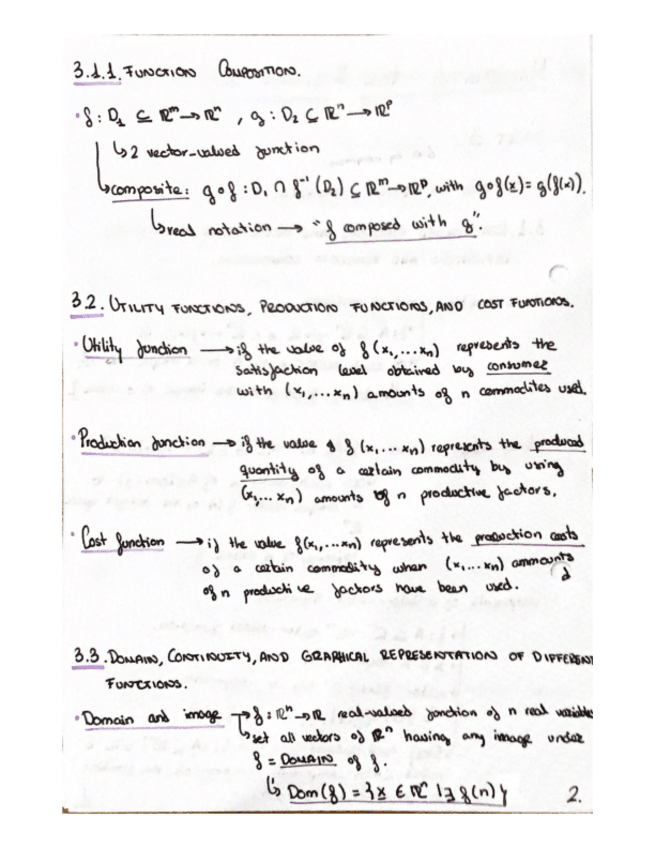 3.1.1. FUNCTION COMPOSITION.
· f : D₁ ⊆ ℝᵐ → ℝⁿ , g : D₂ ⊆ ℝⁿ → ℝᵖ
↳ 2 vector-valued function
↳ composite: g∘f : D₁ ∩ f⁻¹(D₂) ⊆ ℝᵐ → ℝᵖ, with g∘f(x) = g(f(x)).
↳ real notation → "f composed with g"
3.2. UTILITY FUNCTIONS, PRODUCTION FUNCTIONS, AND COST FUNTIONS.
· Utility function → if the value of f(x₁,...xₙ) represents the
satisfaction level obtained by consumer
with (x₁,...xₙ) amounts of n commodites used.
· Production function → if the value of f(x₁,...xₙ) represents the produced
quantity of a certain commodity by using
(x₁...xₙ) amounts of n productive factors.
· Cost function → if the value f(x₁,...xₙ) represents the production costs
of a certain commodity when (x₁...xₙ) ammounts
of n productive factors have been used.
3.3. DOMAIN, CONTINUITY, AND GRAPHICAL REPRESENTATION OF DIFFEREN
FUNCTIONS.
· Domain and image → f : ℝⁿ → ℝ real-valued function of n real variables
↳ set all vectors of ℝⁿ having any image under
f = DOMAIN of f.
↳ Dom(f) = {x ∈ ℝⁿ | ∃ f(n)}
2.